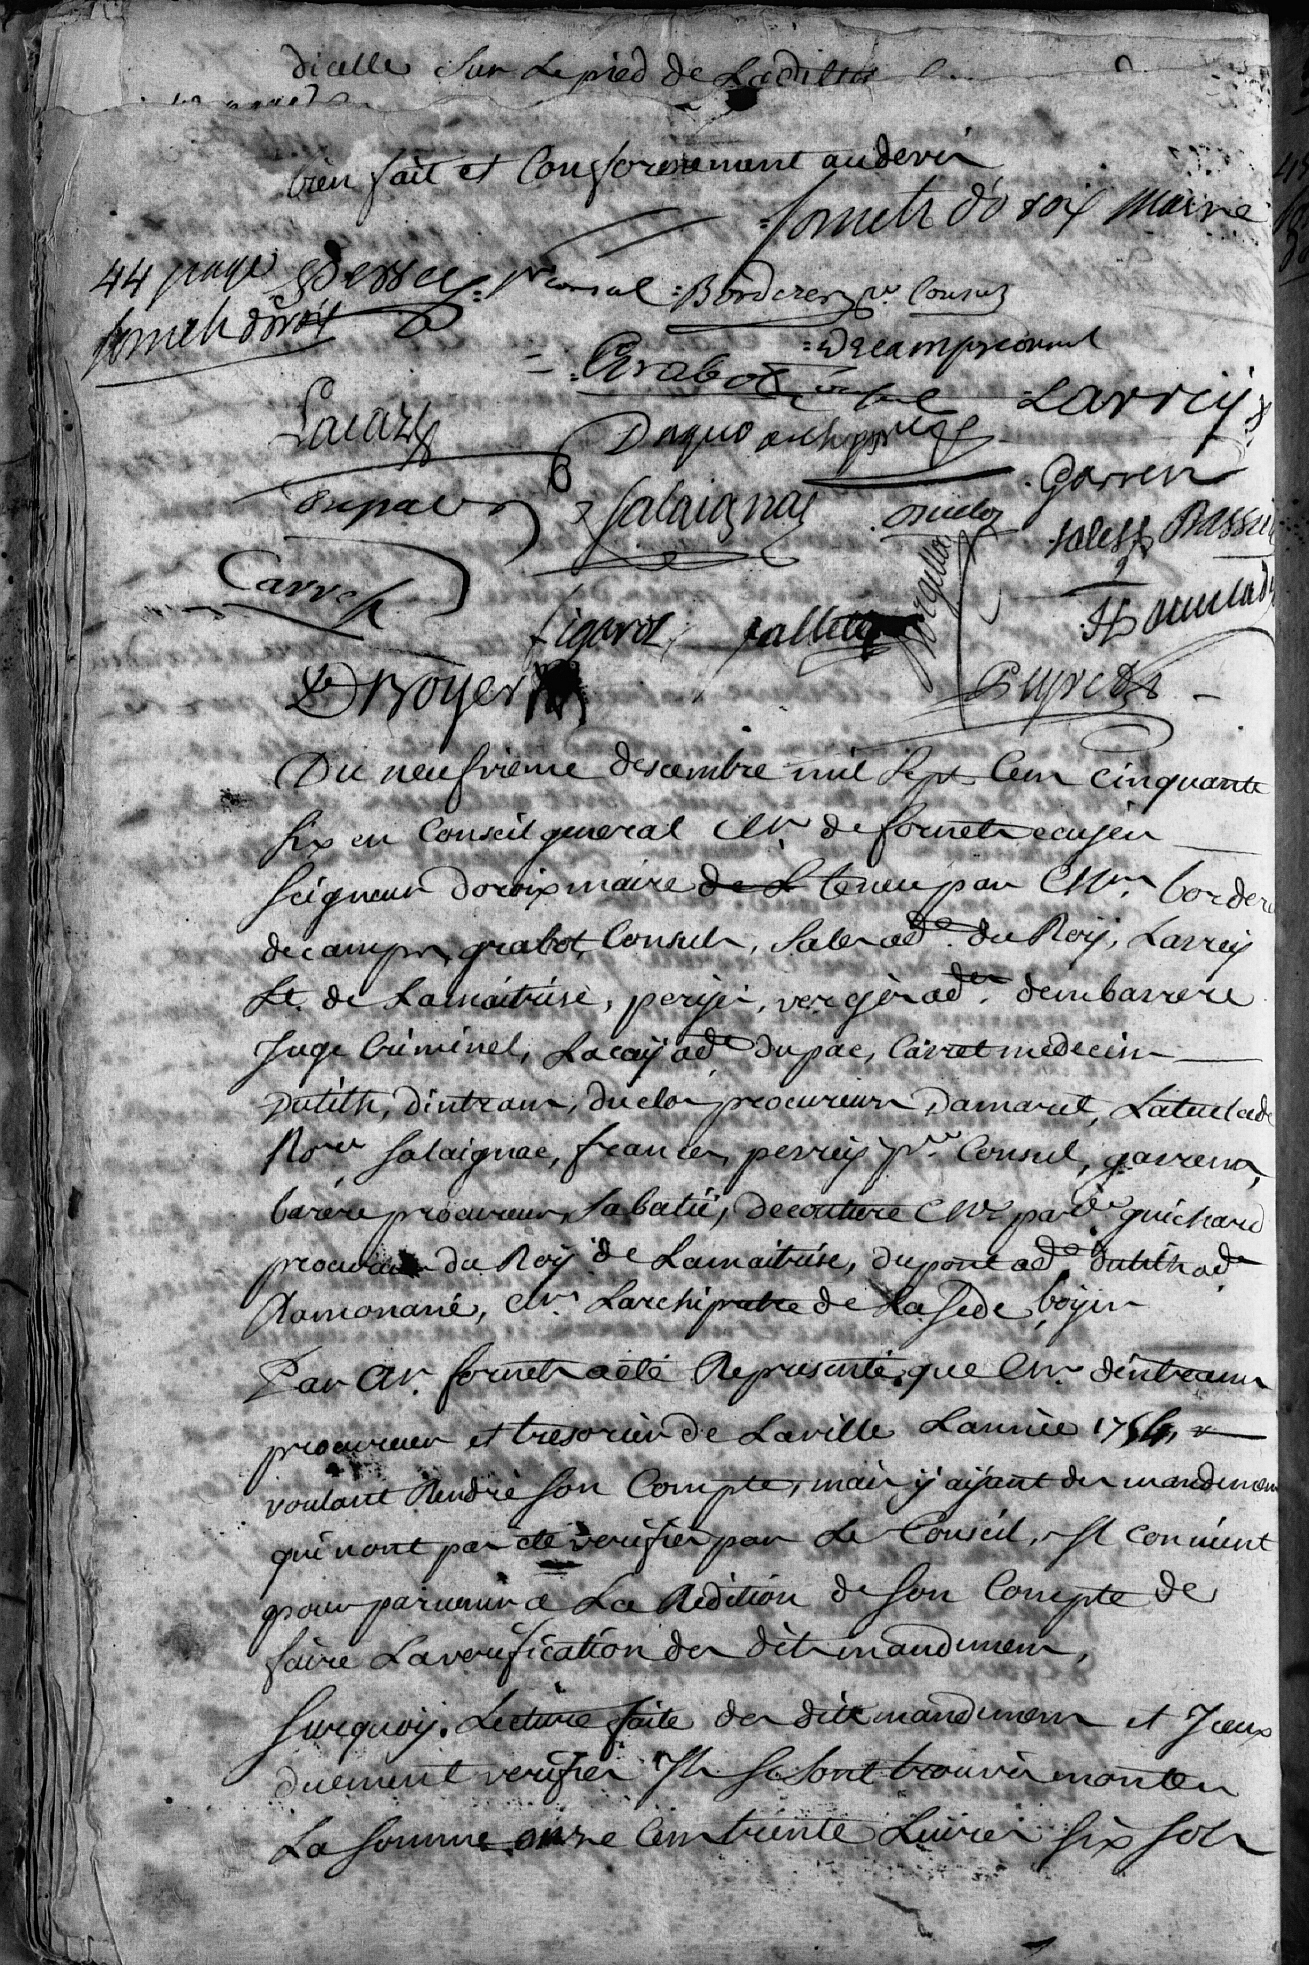 dicelle sur le pied de Ladite
bien fait et Conformement au devis
fornets d'oroix Maire
44 page
fornets doroix
1er consul Borderes Consul
Decamps consul
Grabot
Larrey
Lacaze
Daguo archipretre
Gorren
Dupac
Salaignac
Duclos
Carret
figarol
Salles
Bassu
D Boyer
Peyrede
Du neufvieme descembre mil sept Cens cinquante
six en Conseil general Mr. de fornets ecuyer
seigneur doroix maire de L teneu par Mrs. bordere
decamps, grabot Consuls, Sales ad. du Roy, Larrey
Lt. de Lamaitrise, peryer, verges ads. dembarrere
Juge Criminel, Lacay ad. Dupac, Carret medecin
Dutilh, dintrans, duclos procureurs, Damaret, Latuelade
Nore. Salaignac, frances, perrey pr. Consul, garrens,
barére procureur, Sabatié, decouture Mr. par de guichard
procureur du Roy de Lamaitrise, dupont ad. dutilh ad.
Ramonané, Mr. Larchipretre de La Sede, boyer
Par Mr. fornets a été Representé que Mr. dintrans
procureur et tresorier de Laville Lannée 1754
voulant Rendre son Compte, mais y ayant des mandemens
qui nont pas eté verifies par Le Conseil, Il convient
pour parvenir a La Redition de son Compte de
faire Laverification des dits mandemens,
Surquoy. Lecture faite des dits mandemens et Iceux
duement verifies Ils se sont trouvés monter
La somme onze Cens trente Livres six sols